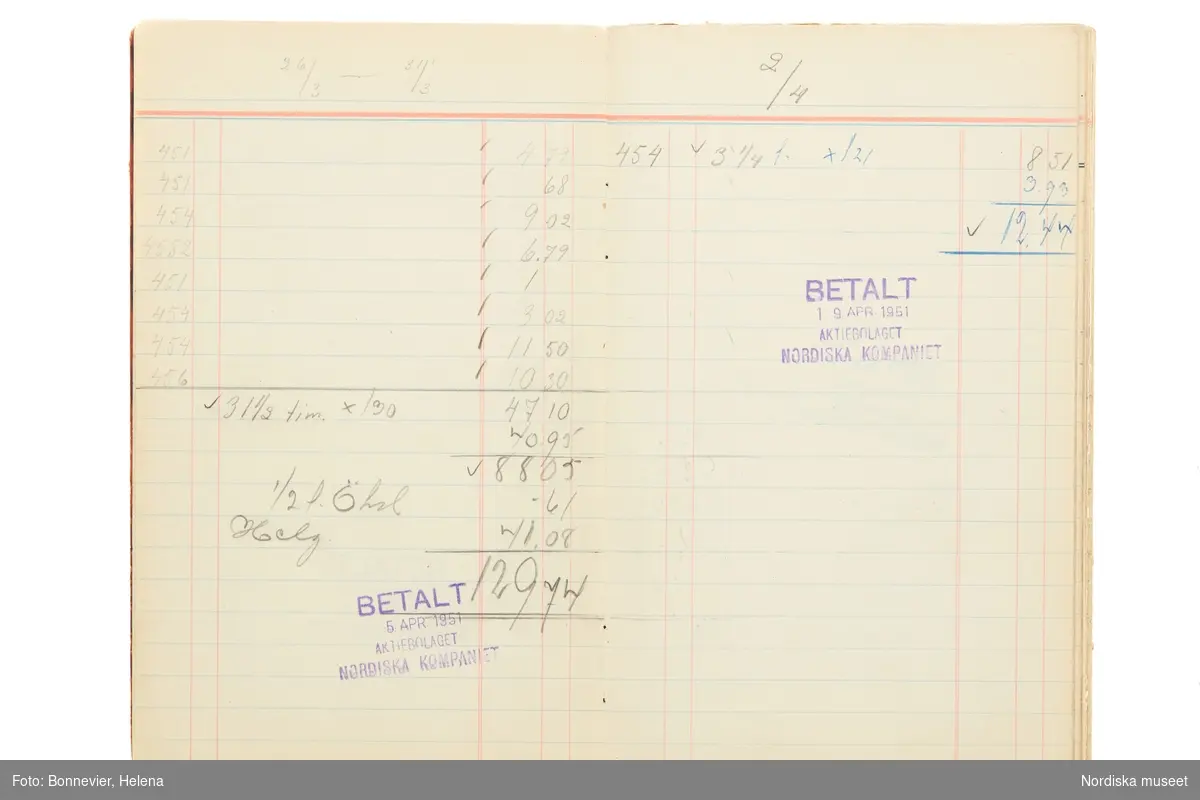 26/3 — 31/3
451 4 79
451 68
454 9 02
4552 6.79
451 1
454 3 02
454 11 50
456 10 30
✓ 31 1/2 tim. x/30 47 10
40.95
✓ 88 05
1/2 t. Öhsl -61
Helg. 41.08
129 74
BETALT
5 APR 1951
AKTIEBOLAGET
NORDISKA KOMPANIET
2/4
454 ✓ 3 1/4 t. x/21 8 51
3.93
✓ 12.44
BETALT
19 APR 1951
AKTIEBOLAGET
NORDISKA KOMPANIET
Foto: Bonnevier, Helena
Nordiska museet